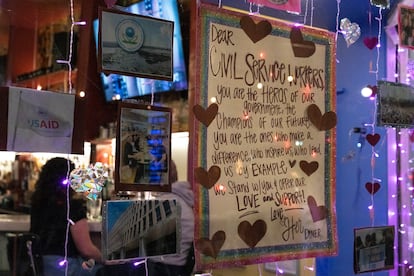 Dear
Civil Service Workers
you are the Heros of our
government, the
Champions of our Future.
you are the ones who make a
difference, who inspire us and lead
us by EXAMPLE
We Stand w/you & offer our
LOVE and SUPPORT!
Love,
DINER
USAID